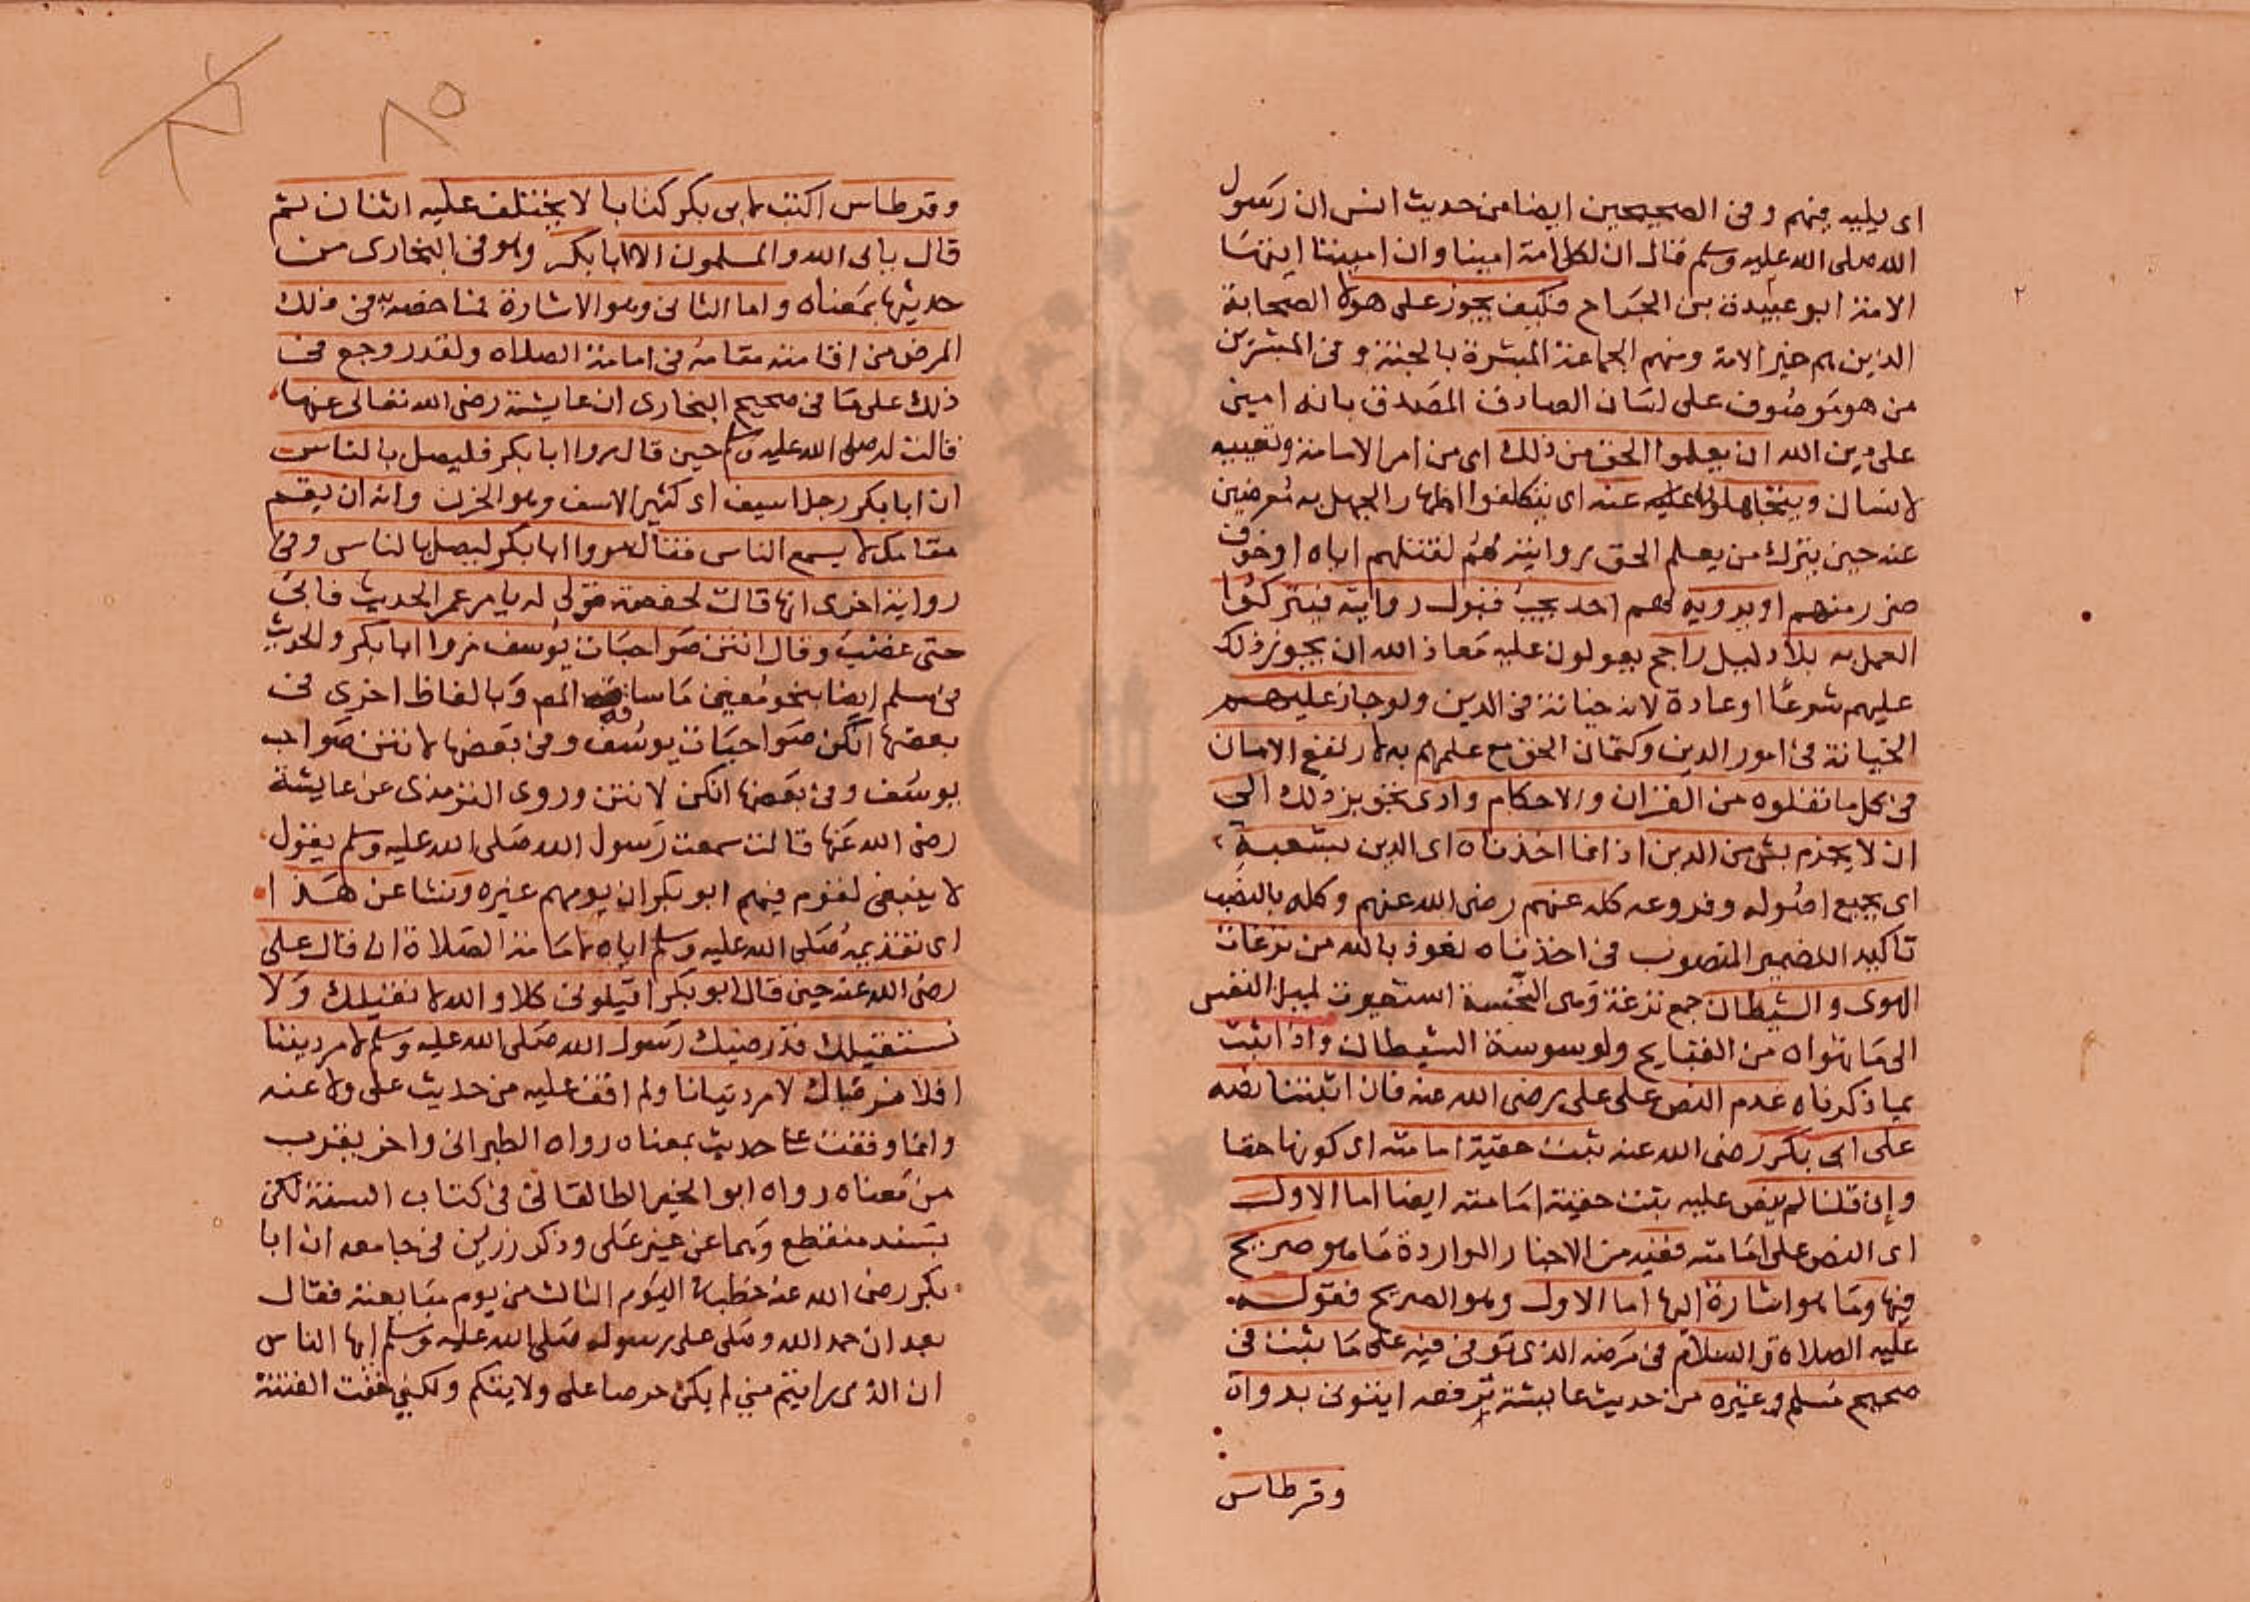 اى يليه منهم وفى الصحيحين ايضا من حديث انس ان رسول
الله صلى الله عليه وسلم قال ان لكل امة امينا وان اميننا ايتها
الامة ابو عبيدة بن الجراح فكيف يجوز على هولاء الصحابة
الذين هم خير الامة ومنهم الجماعة المبشرة بالجنة وفى المبشرين
من هو موصوف على لسان الصادق المصدق بانه امين
على دين الله ان يعلموا الحق من ذلك اى من امر الامامة وتعيينه
لانسان ويتجاهلوا عنه اى يتكلفوا اظهار الجهل به معرضين
عنه حين يترك من يعلم الحق روايته لهم لقتلهم اياه او خوف
ضرر منهم او يرويه لهم احد يجب قبول روايته فيتركوا
العمل به بلا دليل راجح يعولون عليه معاذ الله ان يجوز ذلك
عليهم شرعا او عادة لانه خيانة فى الدين ولو جاز عليهم
الخيانة فى امور الدين وكتمان الحق مع علمهم به لارتفع الامان
فى كل ما نقلوه من القران والاحكام وادى تجويز ذلك الى
ان لا يجزم بشى من الدين اذ انما اخذناه اى الدين بشعبه
اى بجميع اصوله وفروعه كله عنهم رضى الله عنهم وكله بالنصب
تاكيد للضمير المنصوب فى اخذناه نعوذ بالله من نزغات
الهوى والشيطان جمع نزغة وهى النخسة استعيرت لميل النفس
الى ما تهواه من القبايح ولوسوسة الشيطان واذا ثبت
بما ذكرناه عدم النص على على رضى الله عنه فان اثبتنا نصه
على ابى بكر رضى الله عنه ثبت حقية امامته اى كونها حقا
وان قلنا لم ينص عليه ثبت حقية امامته ايضا اما الاول
اى النص على امامته ففيه من الاخبار الواردة ما هو صريح
فيها وما هو اشارة اليها اما الاول وهو الصريح فقوله
عليه الصلاة والسلام فى مرضه الذى توفى فيه على ما ثبت فى
صحيح مسلم وغيره من حديث عايشة ترفعه ايتونى بدواة
وقرطاس
٢
٨٥
وقرطاس اكتب لابى بكر كتابا لا يختلف عليه اثنان ثم
قال يابى الله والمسلمون الا ابا بكر وهو فى البخارى من
حديثها بمعناه واما الثانى وهو الاشارة فما خصه به فى ذلك
المرض من اقامته مقامه فى امامة الصلاة ولقد روجع فى
ذلك على ما فى صحيح البخارى ان عايشة رضى الله تعالى عنها
قالت له صلى الله عليه وسلم حين قال مروا ابا بكر فليصل بالناس
ان ابا بكر رجل اسيف اى كثير الاسف وهو الحزن وانه ان يقم
مقامك لا يسمع الناس فقال مروا ابا بكر ليصل بالناس وفى
رواية اخرى انها قالت لحفصة قولى له يامر عمر الحديث فابى
حتى غضب وقال انتن صواحبات يوسف مروا ابا بكر والحديث
فى مسلم ايضا بنحو معنى ما ساقه المص وبالفاظ اخرى فى
بعضها انكن صواحبات يوسف وفى بعضها لانتن صواحب
يوسف وفى بعضها انكن لانتن وروى الترمذى عن عايشة
رضى الله عنها قالت سمعت رسول الله صلى الله عليه وسلم يقول
لا ينبغى لقوم فيهم ابو بكر ان يومهم غيره ونشا عن هذا
اى تقديمه صلى الله عليه وسلم اياه لامامة الصلاة ان قال على
رضى الله عنه حين قال ابو بكر اقيلونى كلا والله لا نقيلك ولا
نستقيلك قد رضيك رسول الله صلى الله عليه وسلم لامر ديننا
افلا نرضاك لامر دنيانا ولم اقف عليه من حديث على ولا عنه
وانما وقفت على حديث بمعناه رواه الطبرانى واخر يقرب
من معناه رواه ابو الخير الطالقانى فى كتاب السنة لكن
بسند منقطع وهما عن غير على وذكر رزين فى جامعه ان ابا
بكر رضى الله عنه خطب اليوم الثالث من يوم مبايعته فقال
بعد ان حمد الله وصلى على رسوله صلى الله عليه وسلم ايها الناس
ان الذى رايتم منى لم يكن حرصا على ولايتكم ولكنى خفت الفتنة